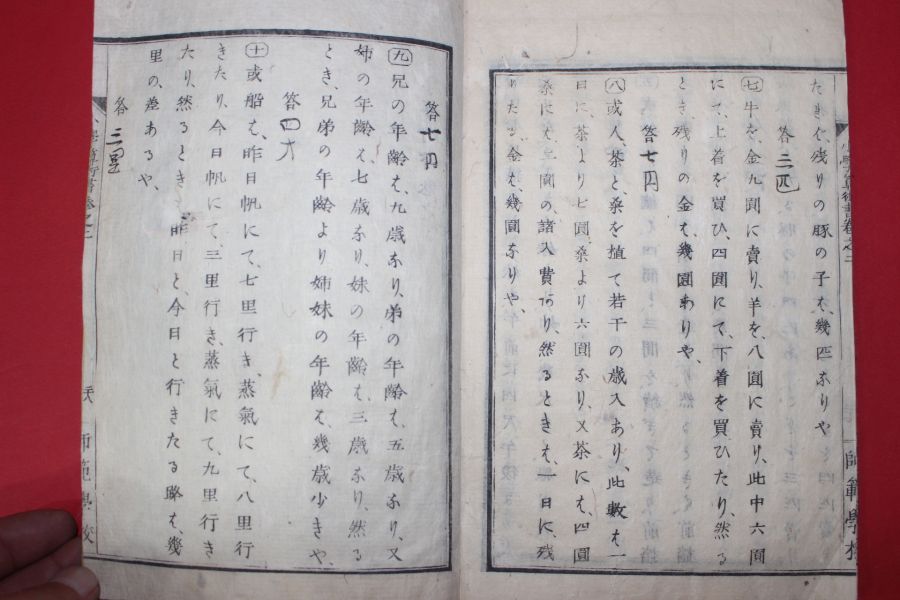 たきは、残りの豚の子は、幾匹なりや
答 三匹
七 牛を、金九圓に賣り、羊を、八圓に賣り、此中六圓
にて、上着を買ひ、四圓にて、下着を買ひたり、然る
とき、残りの金は、幾圓ありや、
答 七円
八 或人、茶と、桑を植て若干の歳入あり、此數は一
日に、茶より七圓、桑より六圓なり、又茶には、四圓
桑には 圓の、諸入費あり、然るときは、一日に、残
りたる、金は、幾圓なりや、
師範學校
答 七円
九 兄の年齢は、九歳なり、弟の年齢は、五歳なり、又
姉の年齢は、七歳なり、妹の年齢は、三歳なり、然る
とき、兄弟の年齢より姉妹の年齢は、幾歳少きや、
答 四才
十 或船は、昨日帆にて、七里行き、蒸氣にて、八里行
きたり、今日帆にて、三里行き、蒸氣にて、九里行き
たり、然るときは 昨日と、今日と行きたる路は、幾
里の、差あるや、
答 三里
師範學校